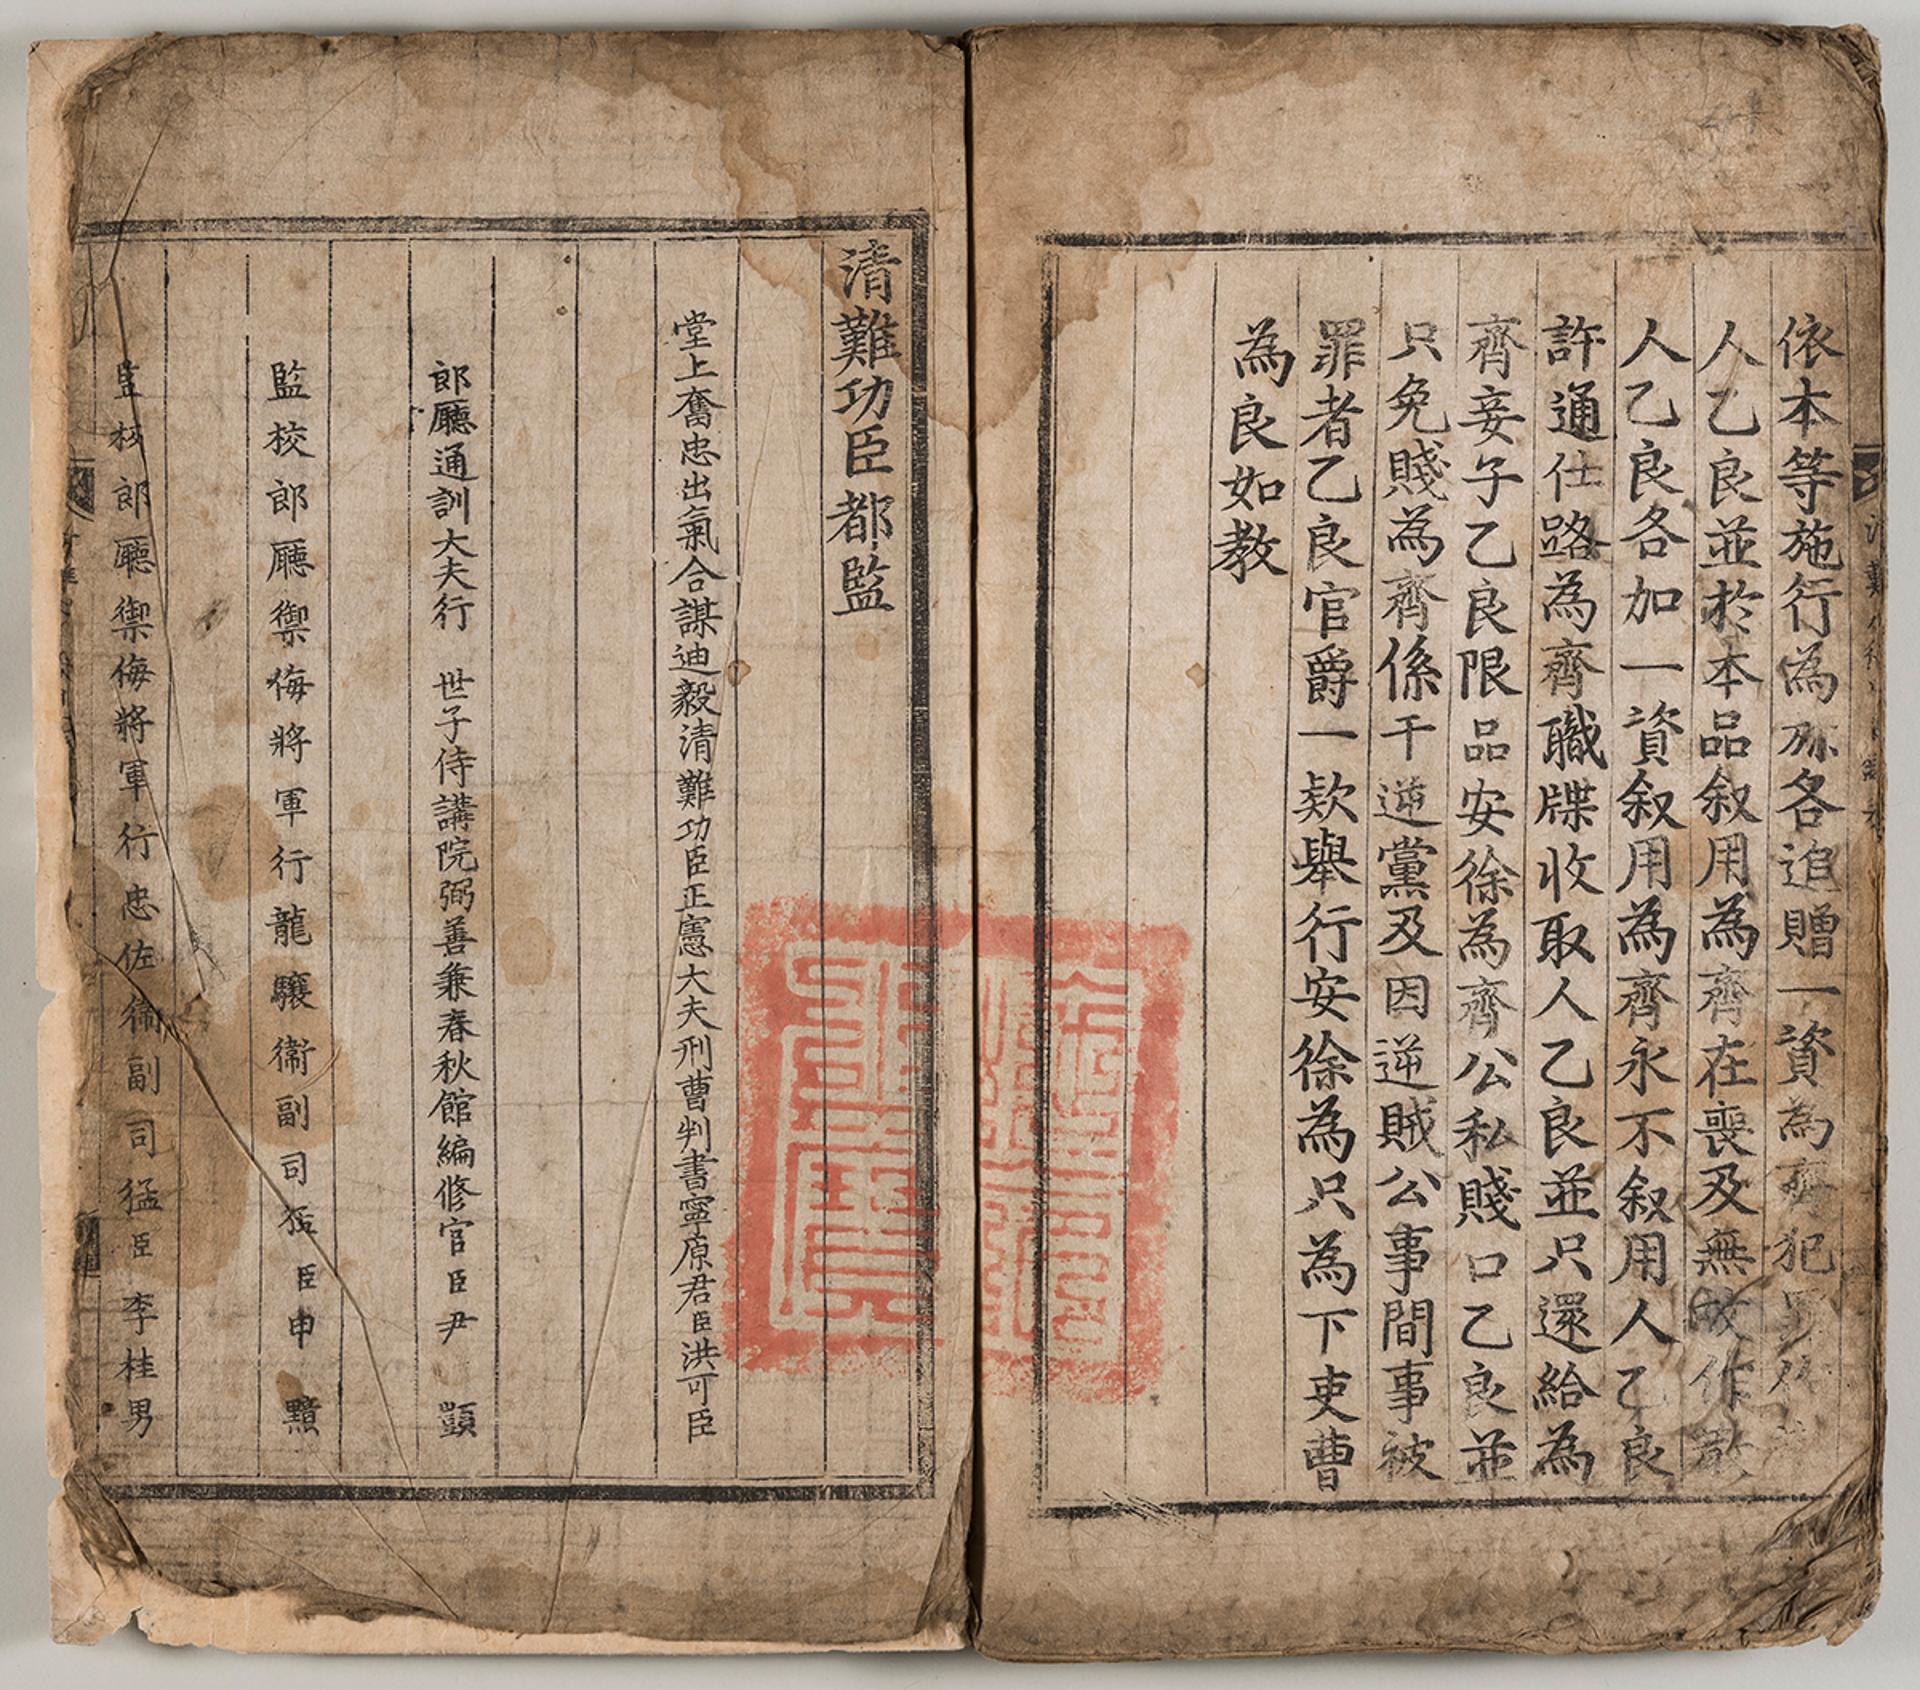 依本等施行為㫆各追贈一資為齊犯罪
人乙良並於本品叙用為齊在喪及無故作散
人乙良各加一資叙用為齊永不叙用人乙良
許通仕路為齊職牒收取人乙良並只還給為
齊妾子乙良限品安徐為齊公私賤口乙良並
只免賤為齊係干逆黨及因逆賊公事間事被
罪者乙良官爵一款舉行安徐為只為下吏曹
為良如教
清難功臣都監
堂上奮忠出氣合謀迪毅清難功臣正憲大夫刑曹判書寧原君臣洪可臣
郎廳通訓大夫行 世子侍講院弼善兼春秋館編修官臣尹 顗
監校郎廳禦侮將軍行龍驤衛副司猛臣申 黯
監校郎廳禦侮將軍行忠佐衛副司猛臣李桂男